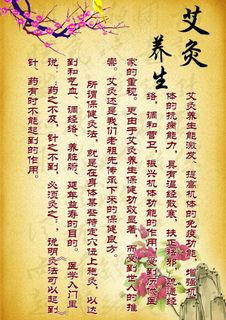 艾灸
养生
艾灸养生能激发、提高机体的免疫功能,增强机
体的抗病能力,具有温经散寒、扶正祛邪、疏通经
络、调和营卫、振兴机体功能的作用,受到历代医
家的重视。更由于艾灸养生保健功效显著,而受到世人的推
崇。艾灸还是我们老祖先传承下来的保健良方。
所谓保健灸法,就是在身体某些特定穴位上施灸,以达
到和气血、调经络、养脏腑、延年益寿的目的。医学入门里
说:药之不及,针之不到,必须灸之,说明灸法可以起到
针、药有时不能起到的作用。